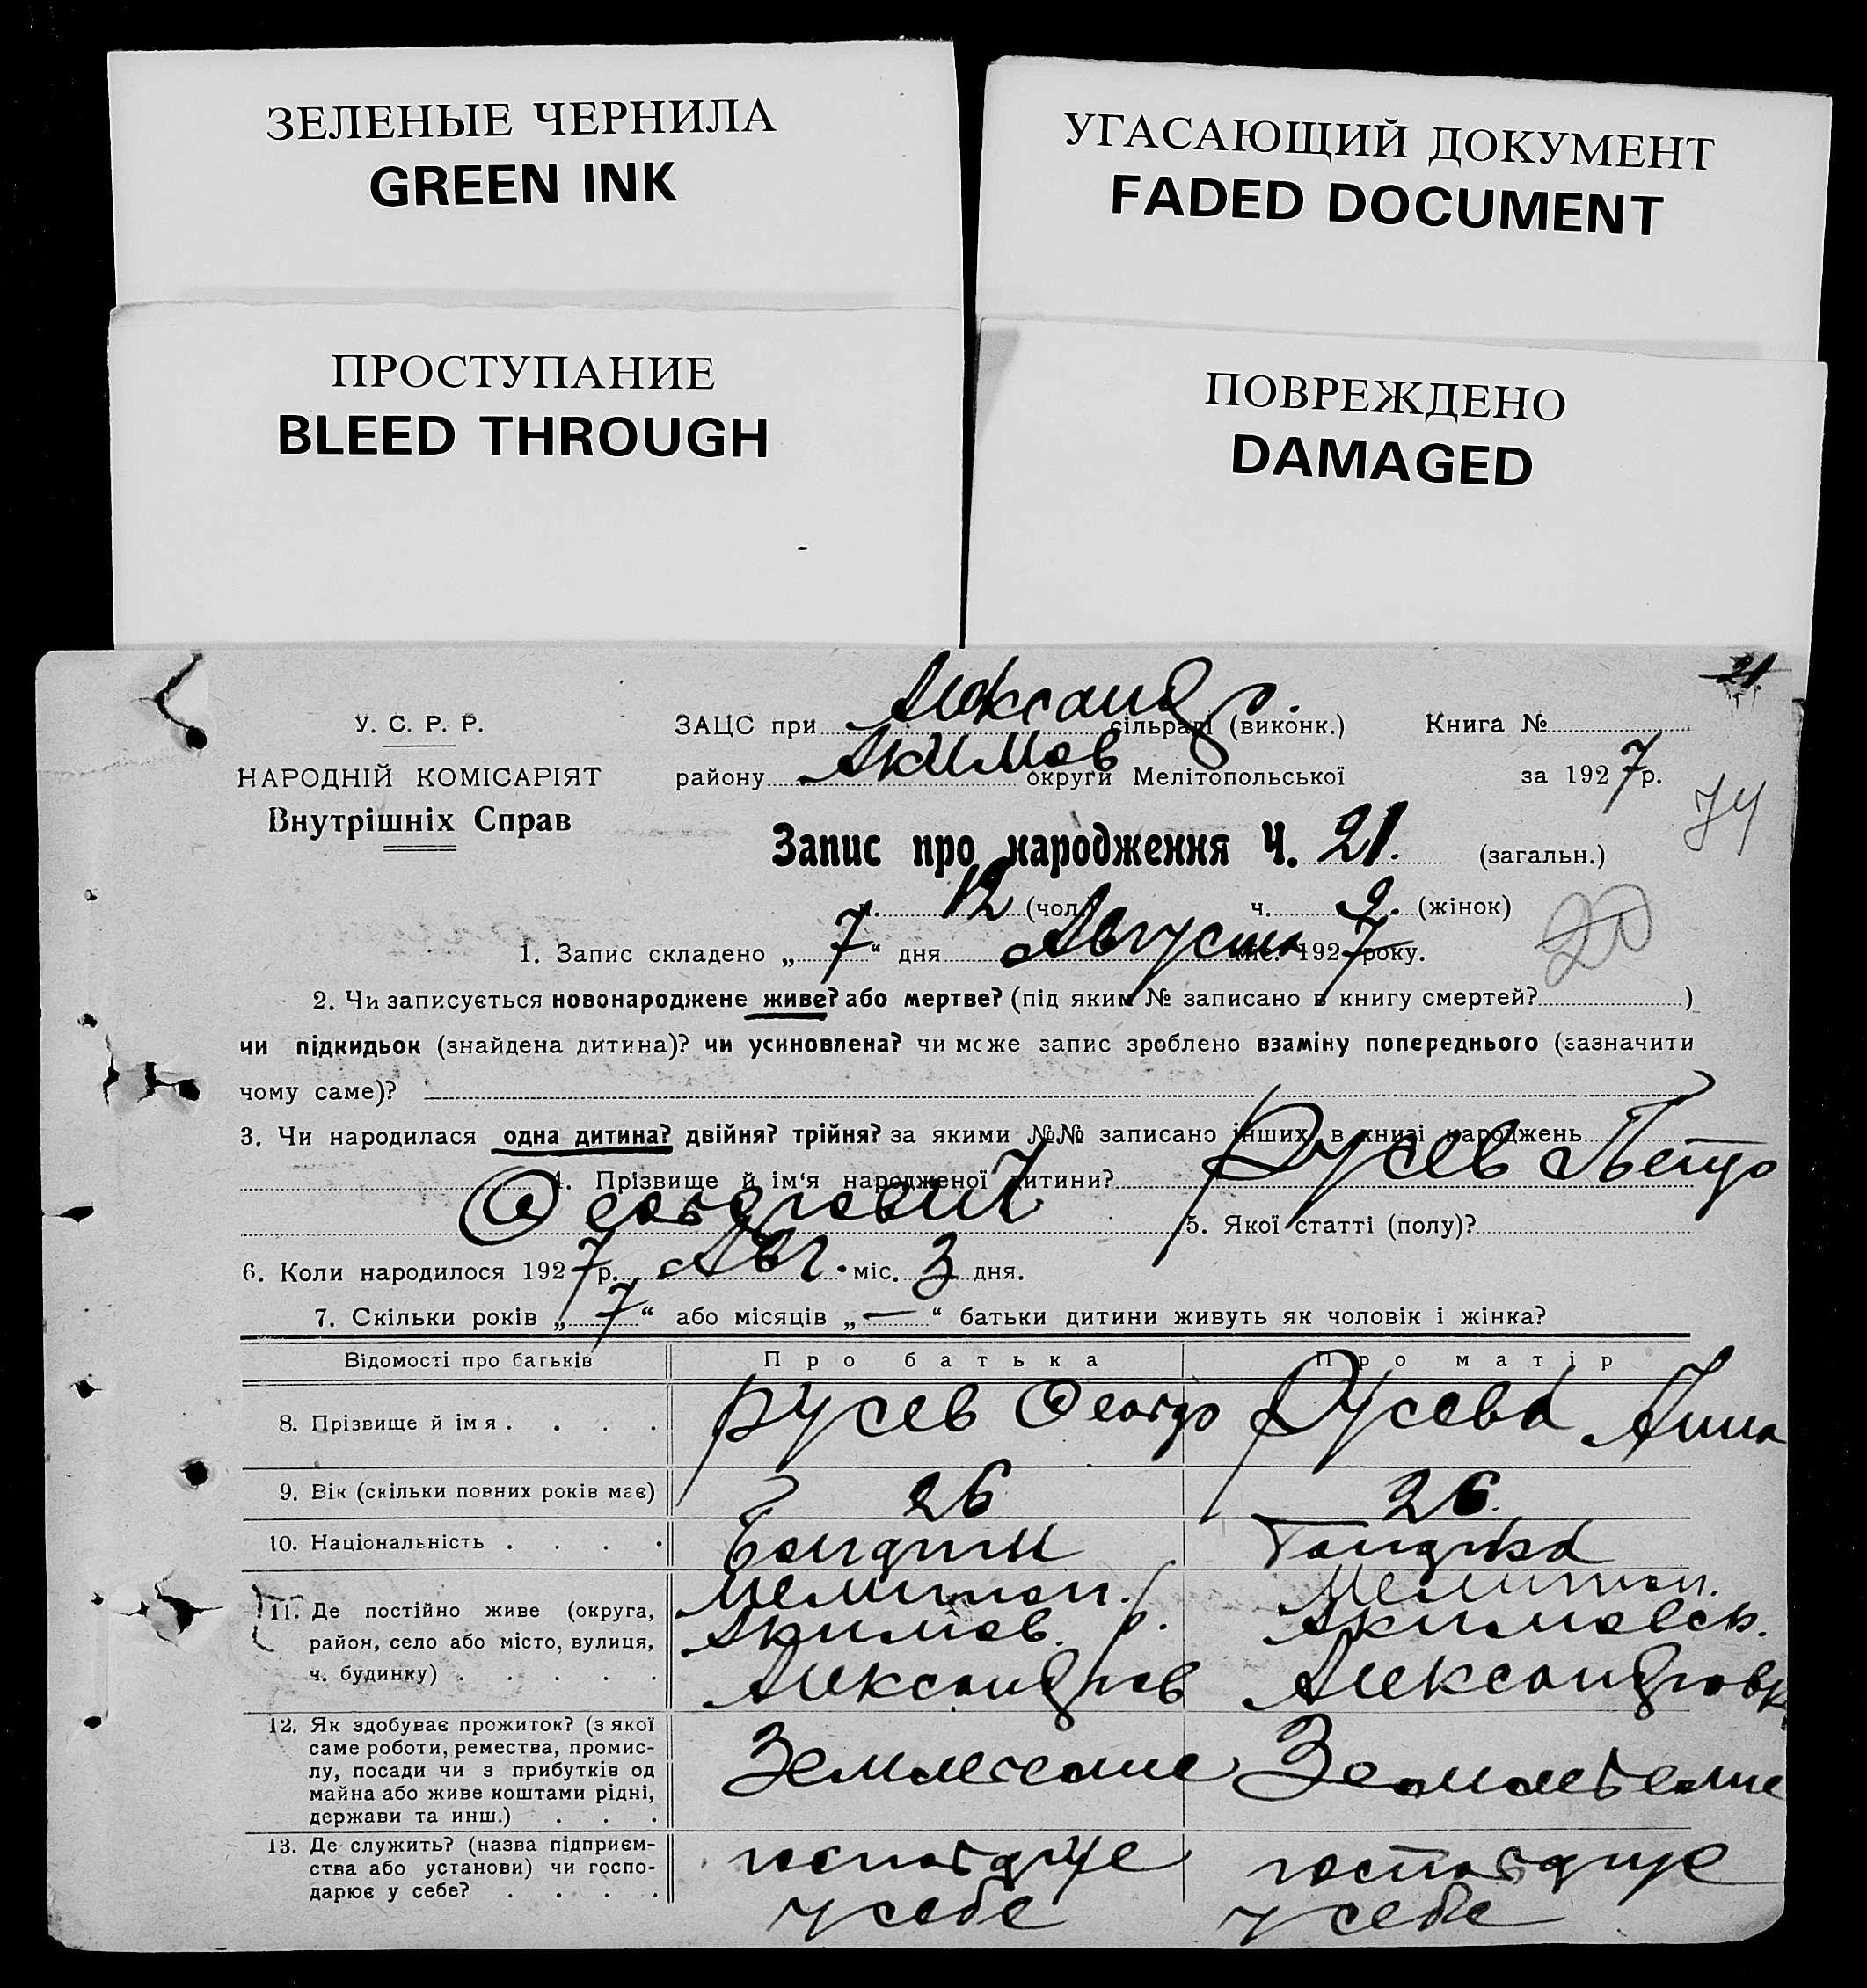 ЗЕЛЕНЫЕ ЧЕРНИЛА
GREEN INK
УГАСАЮЩИЙ ДОКУМЕНТ
FADED DOCUMENT
ПРОСТУПАНИЕ
BLEED THROUGH
ПОВРЕЖДЕНО
DAMAGED
21
У. С. Р. Р.
НАРОДНІЙ КОМІСАРІЯТ
Внутрішніх Справ
ЗАЦС при Александр. сільраді (виконк.) Книга №
району Акимов округи Мелітопольської за 1927 р.
74
Запис про народження Ч. 21. (загальн.)
ч. 12 (чол.) ч. 9. (жінок)
20
1. Запис складено „ 7 “ дня Августа міс. 1927 року.
2. Чи записується новонароджене живе? або мертве? (під яким № записано в книгу смертей? )
чи підкидьок (знайдена дитина)? чи усиновлена? чи може запис зроблено взаміну попереднього (зазначити
чому саме)?
3. Чи народилася одна дитина? двійня? трійня? за якими №№ записано інших в книзі народжень
4. Прізвище й ім'я народженої дитини? Русев Петро
5. Якої статті (полу)?
6. Коли народилося 1927 р. Авг. міс. 3 дня.
7. Скільки років „ 7 “ або місяців „ — “ батьки дитини живуть як чоловік і жінка?
Відомості про батьків Про батька Про матір
8. Прізвище й ім я . . . . Русев Русева Анна
9. Вік (скільки повних років має) 26 26.
10. Національність . . . .
11. Де постійно живе (округа, Мелитоп. Мелитоп.
район, село або місто, вулиця, Акимов. р. Акимовск.
ч. будинку) . . . . . Александров Александровк
12. Як здобуває прожиток? (з якої
саме роботи, ремества, промис-
лу, посади чи з прибутків од
майна або живе коштами рідні,
держави та инш.) . . .
13. Де служить? (назва підприєм-
ства або установи) чи госпо-
дарює у себе? . . . .
у себе у себе